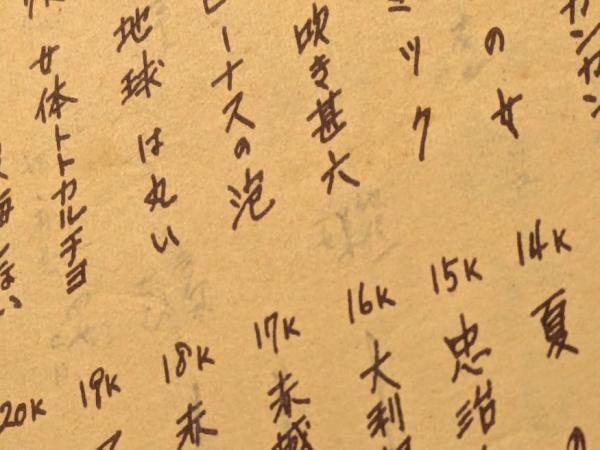 カンカン
の女
ック
吹き甚六
ーナスの泡
地球は丸い
女体トトカルチョ
14K
夏
15K
忠治
16K
大利
17K
赤城
18K
赤
19K
20K